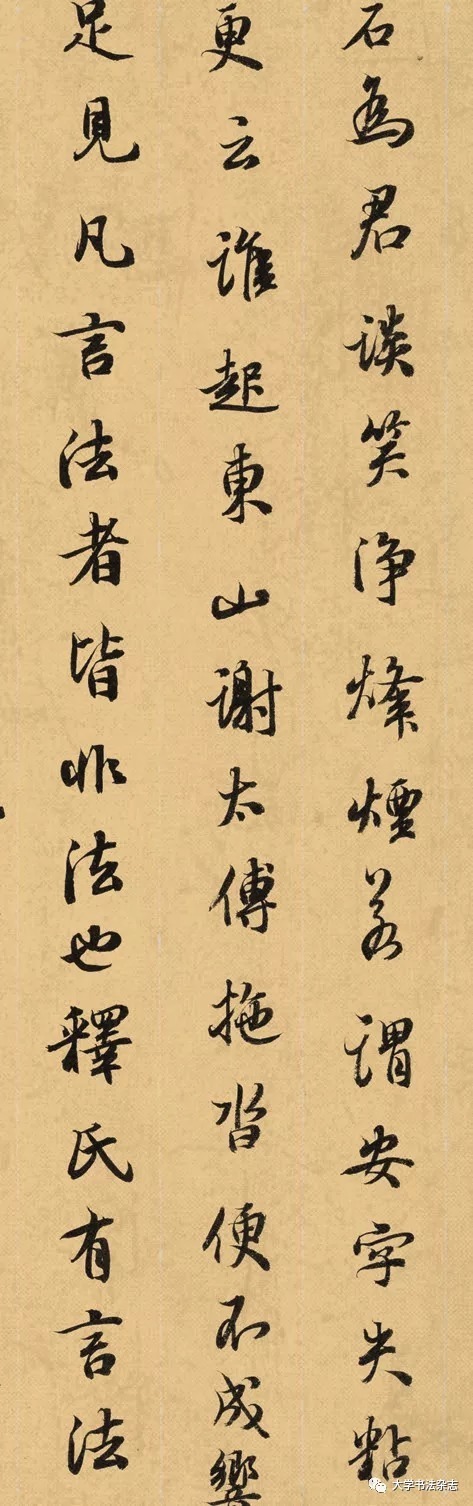 石為君談笑淨烽煙若謂安字失黏
更云誰起東山謝太傅拖沓便不成響
足見凡言法者皆非法也釋氏有言法
大学书法杂志